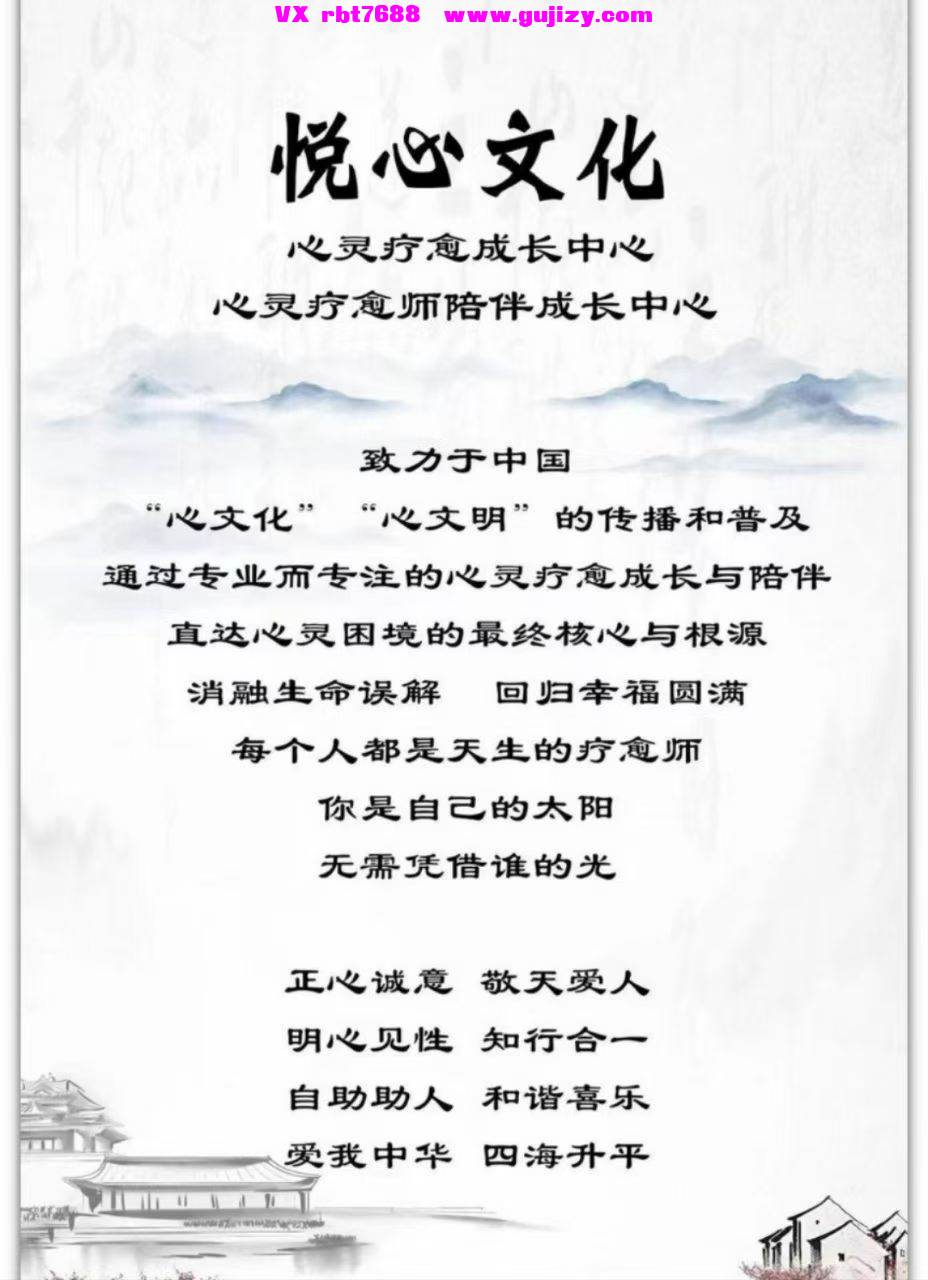 VX rbt7688 www.gujizy.com
悦心文化
心灵疗愈成长中心
心灵疗愈师陪伴成长中心
致力于中国
“心文化” “心文明”的传播和普及
通过专业而专注的心灵疗愈成长与陪伴
直达心灵困境的最终核心与根源
消融生命误解 回归幸福圆满
每个人都是天生的疗愈师
你是自己的太阳
无需凭借谁的光
正心诚意 敬天爱人
明心见性 知行合一
自助助人 和谐喜乐
爱我中华 四海升平